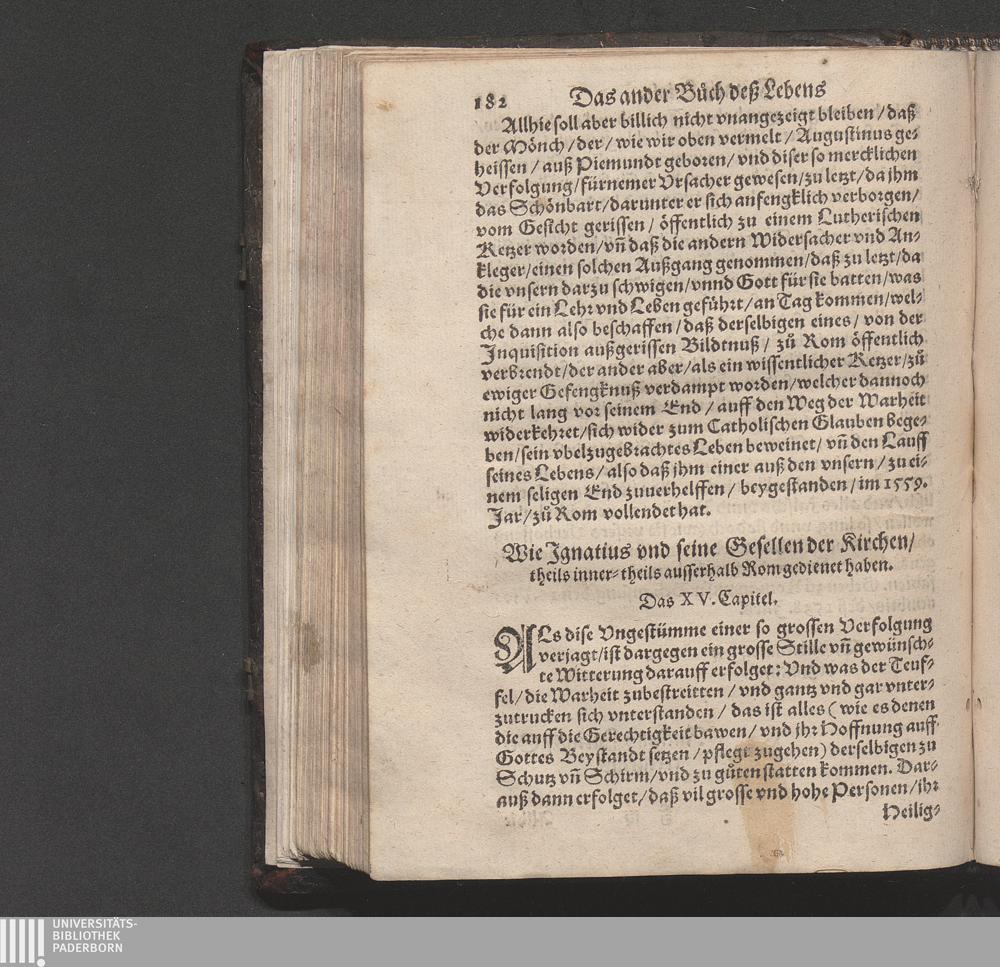 182 Das ander Bůch deß Lebens
Allhie soll aber billich nicht vnangezeigt bleiben / daß
der Mönch / der / wie wir oben vermelt / Augustinus ge-
heissen / auß Piemundt geboren / vnd diser so mercklichen
Verfolgung / fürnemer Vrsacher gewesen / zu letzt / da jhm
das Schönbart / darunter er sich anfengklich verborgen /
vom Gesicht gerissen / öffentlich zu einem Lutherischen
Ketzer worden / vñ daß die andern Widersacher vnd An-
kleger / einen solchen Außgang genommen / daß zu letzt / da
die vnsern darzu schwigen / vnnd Gott für sie batten / was
sie für ein Lehr vnd Leben geführt / an Tag kommen / wel-
che dann also beschaffen / daß derselbigen eines / von der
Inquisition außgerissen Bildtnuß / zů Rom öffentlich
verbrendt / der ander aber / als ein wissentlicher Ketzer / zů
ewiger Gefengknuß verdampt worden / welcher dannoch
nicht lang vor seinem End / auff den Weg der Warheit
widerkehret / sich wider zum Catholischen Glauben bege-
ben / sein vbelzugebrachtes Leben beweinet / vñ den Lauff
seines Lebens / also daß jhm einer auß den vnsern / zu ei-
nem seligen End zuuerhelffen / beygestanden / im 1559.
Jar / zů Rom vollendet hat.
Wie Ignatius vnd seine Gesellen der Kirchen /
theils inner- theils ausserhalb Rom gedienet haben.
Das XV. Capitel.
ALs dise Vngestümme einer so grossen Verfolgung
verjagt / ist dargegen ein grosse Stille vñ gewünsch-
te Witterung darauff erfolget: Vnd was der Teuf-
fel / die Warheit zubestreitten / vnd gantz vnd gar vnter-
zutrucken sich vnterstanden / das ist alles ( wie es denen
die auff die Gerechtigkeit bawen / vnd jhr Hoffnung auff
Gottes Beystandt setzen / pflegt zugehen) derselbigen zu
Schutz vñ Schirm / vnd zu gůten statten kommen. Dar-
auß dann erfolget / daß vil grosse vnd hohe Personen / jhr
Heilig-
UNIVERSITÄTS-
BIBLIOTHEK
PADERBORN